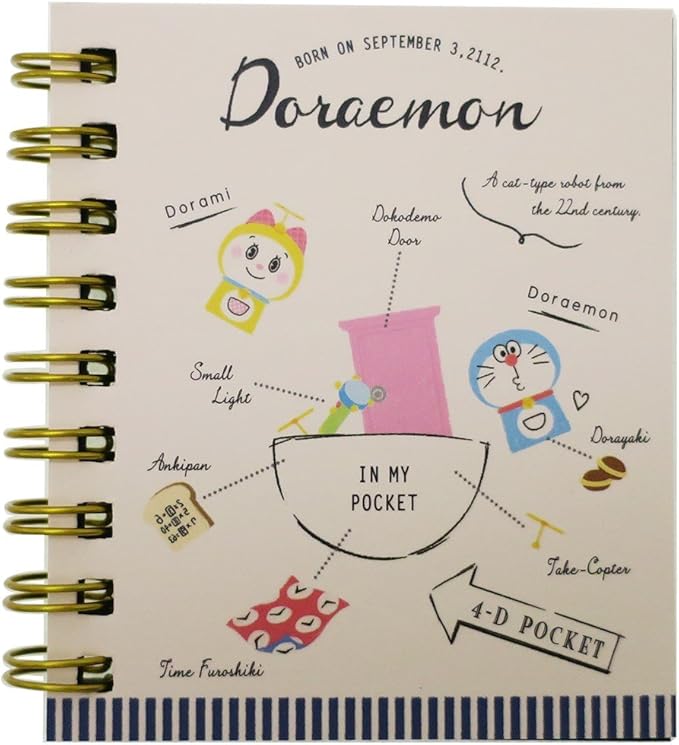 BORN ON SEPTEMBER 3,2112.
Doraemon
A cat-type robot from
the 22nd century.
Dorami
Dokodemo
Door
Doraemon
Small
Light
Dorayaki
Ankipan
IN MY
POCKET
Take-Copter
4-D POCKET
Time Furoshiki